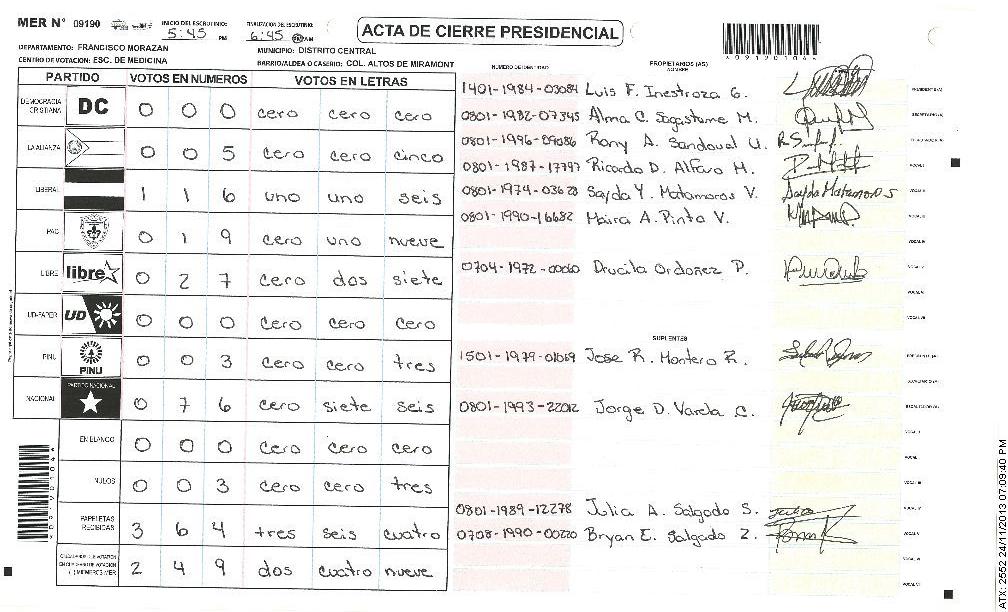 MER N° 09190
INICIO DEL ESCRUTINIO: 5:45 PM
FINALIZACION DEL ESCRUTINIO: 6:45 PM AM
ACTA DE CIERRE PRESIDENCIAL
DEPARTAMENTO: FRANCISCO MORAZAN
MUNICIPIO: DISTRITO CENTRAL
CENTRO DE VOTACION: ESC. DE MEDICINA
BARRIO/ALDEA O CASERIO: COL. ALTOS DE MIRAMONT
PARTIDO VOTOS EN NUMEROS VOTOS EN LETRAS
NUMERO DE IDENTIDAD PROPIETARIOS (AS) NOMBRE
DEMOCRACIA CRISTIANA DC 0 0 0 cero cero cero
LA ALIANZA 0 0 5 cero cero cinco
LIBERAL 1 1 6 uno uno seis
PAC 0 1 9 cero uno nueve
LIBRE libre 0 2 7 cero dos siete
UD-FAPER UD 0 0 0 cero cero cero
PINU PINU 0 0 3 cero cero tres
NACIONAL PARTIDO NACIONAL 0 7 6 cero siete seis
EN BLANCO 0 0 0 cero cero cero
NULOS 0 0 3 cero cero tres
PAPELETAS RECIBIDAS 3 6 4 tres seis cuatro
2 4 9 dos cuatro nueve
1401-1984-03084 Luis F. Inestroza G.
0801-1982-07345 Alma C. Sagastume M.
0801-1996-09086 Rony A. Sandoval U.
0801-1987-17797 Ricardo D. Alfaro M.
0801-1974-03628 Sayda Y. Matamoros V. Sayda Matamoros
0801-1990-16682 Maira A. Pinto V.
0704-1972-00060 Drucila Ordoñez P.
SUPLENTES
1501-1979-01069 Jose R. Montero R.
0801-1993-22012 Jorge D. Varela C.
0801-1989-12278 Julia A. Salgado S.
0708-1990-00220 Bryan E. Salgado Z.
ATX: 2552 24/11/2013 07:09:40 PM